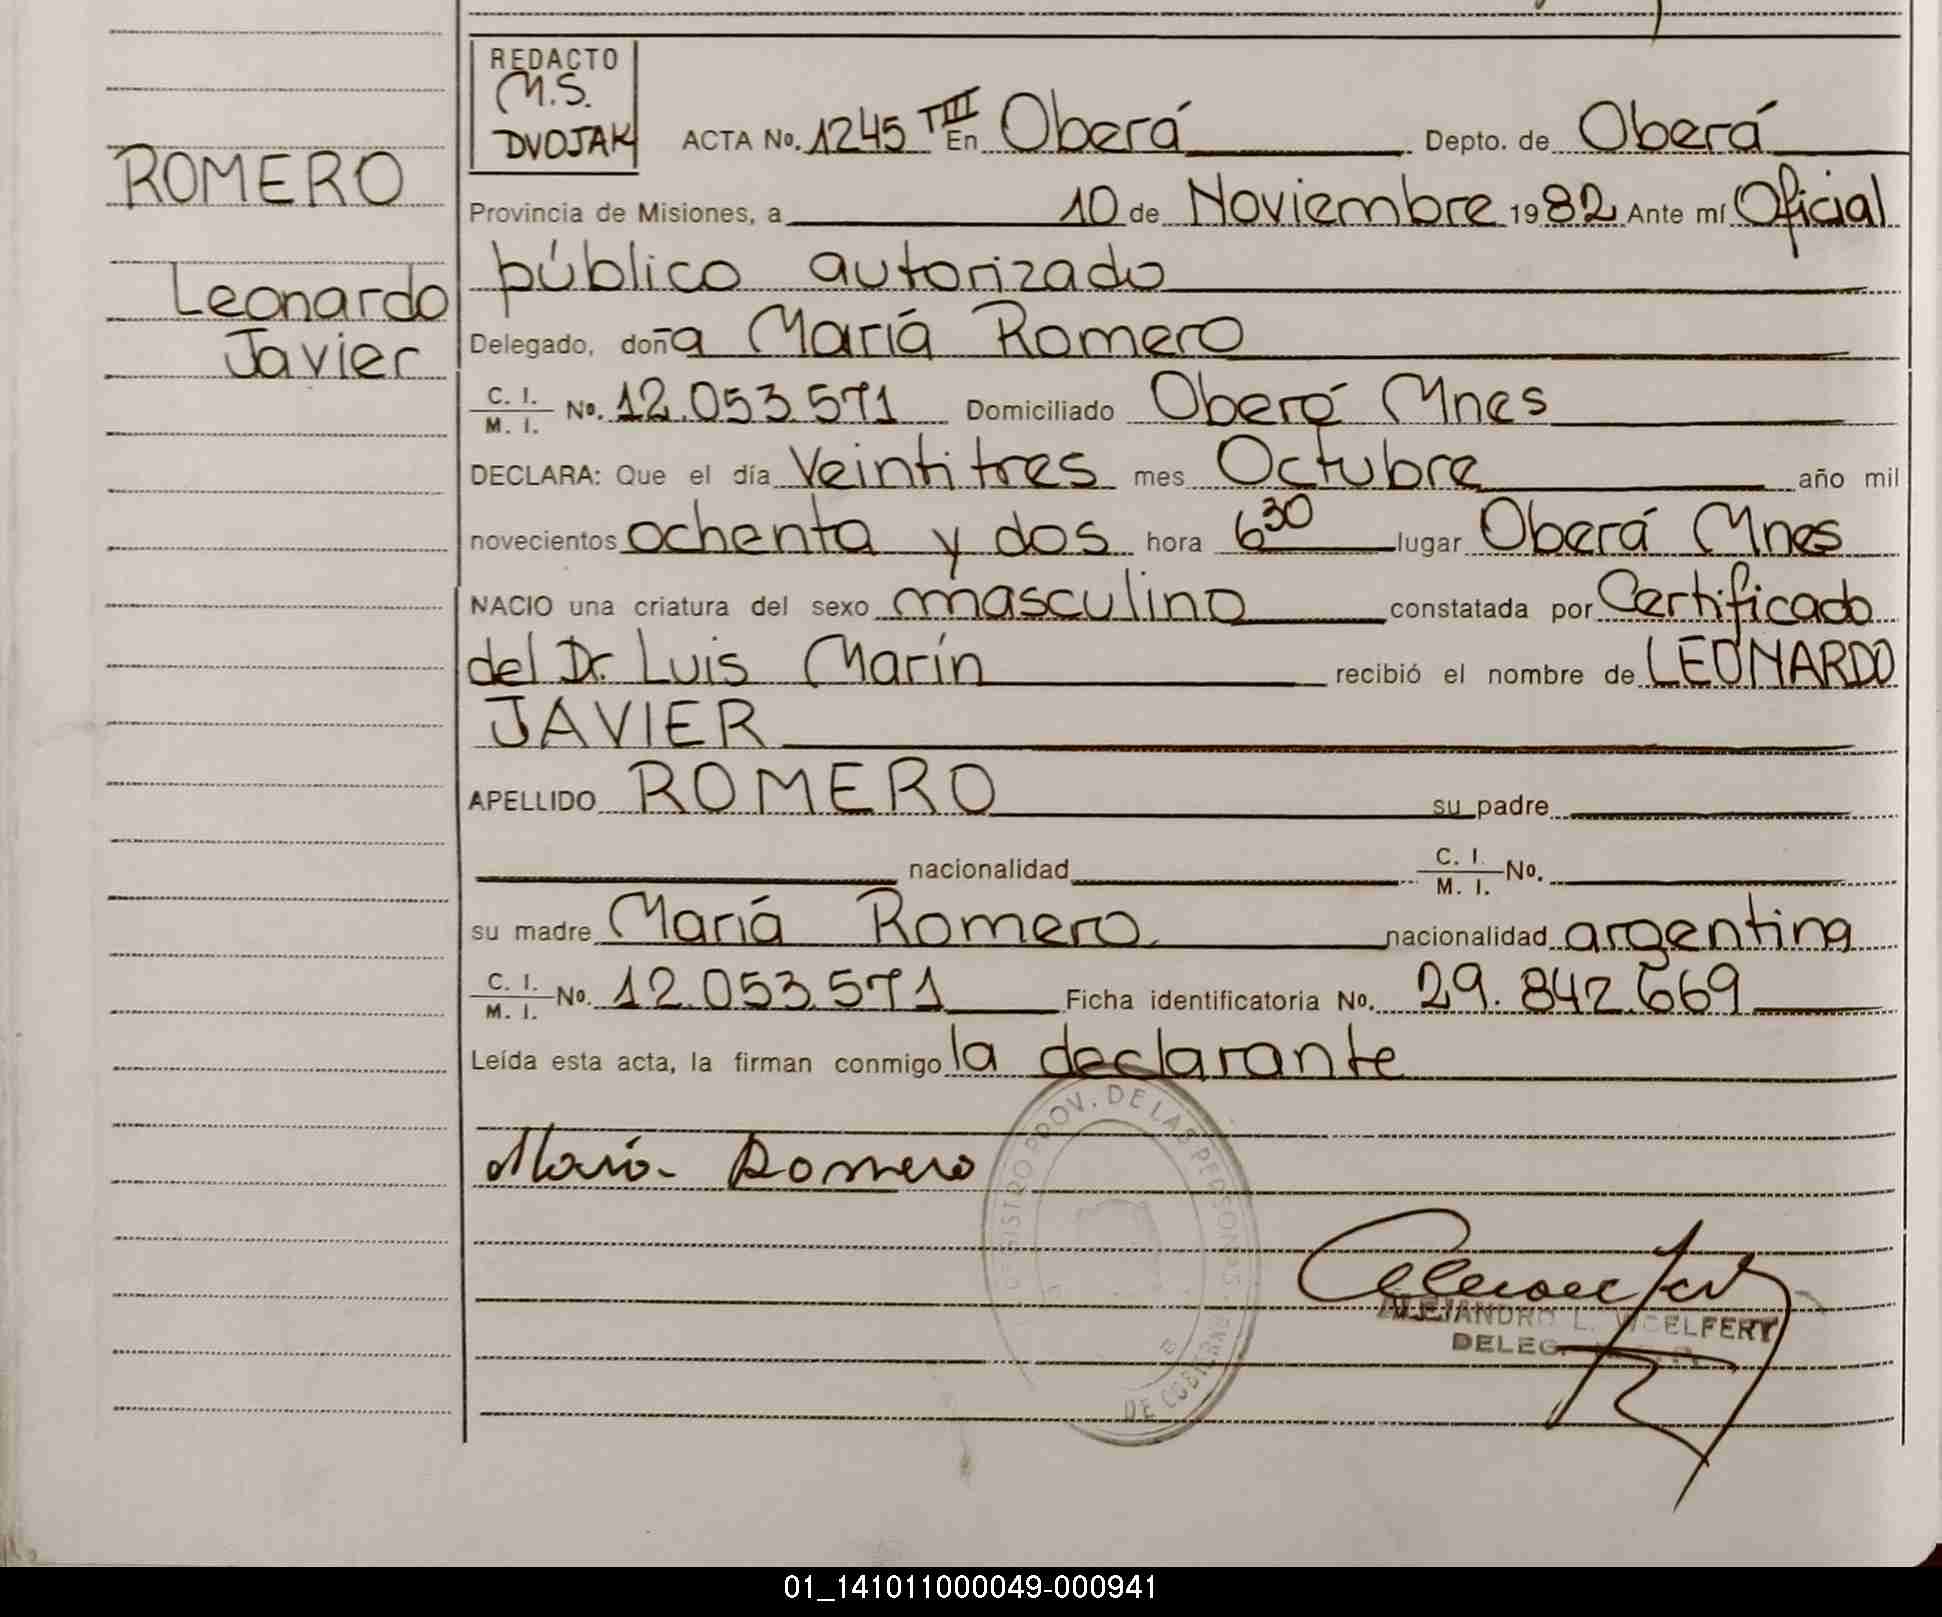 REDACTO
M.S.
DVOJAK
ACTA No. 1245 TIII En Oberá Depto. de Oberá
ROMERO
Provincia de Misiones, a 10 de Noviembre 1982 Ante mí Oficial
público autorizado
Leonardo
Javier
Delegado, doña María Romero
C. I. M. I. No. 12.053.571 Domiciliado Oberá Mnes
DECLARA: Que el día Veintitres mes Octubre año mil
novecientos ochenta y dos hora 6 30 lugar Oberá Mnes
NACIO una criatura del sexo masculino constatada por Certificado
del Dr. Luis Marín recibió el nombre de LEONARDO
JAVIER
APELLIDO ROMERO su padre
nacionalidad C. I. M. I. No.
su madre María Romero nacionalidad argentina
C. I. M. I. No. 12.053.571 Ficha identificatoria No. 29.842.669
Leída esta acta, la firman conmigo la declarante
María Romero
REGISTRO PROV. DE LAS PERSONAS
ALEJANDRO L. WOELFERT
01_141011000049-000941